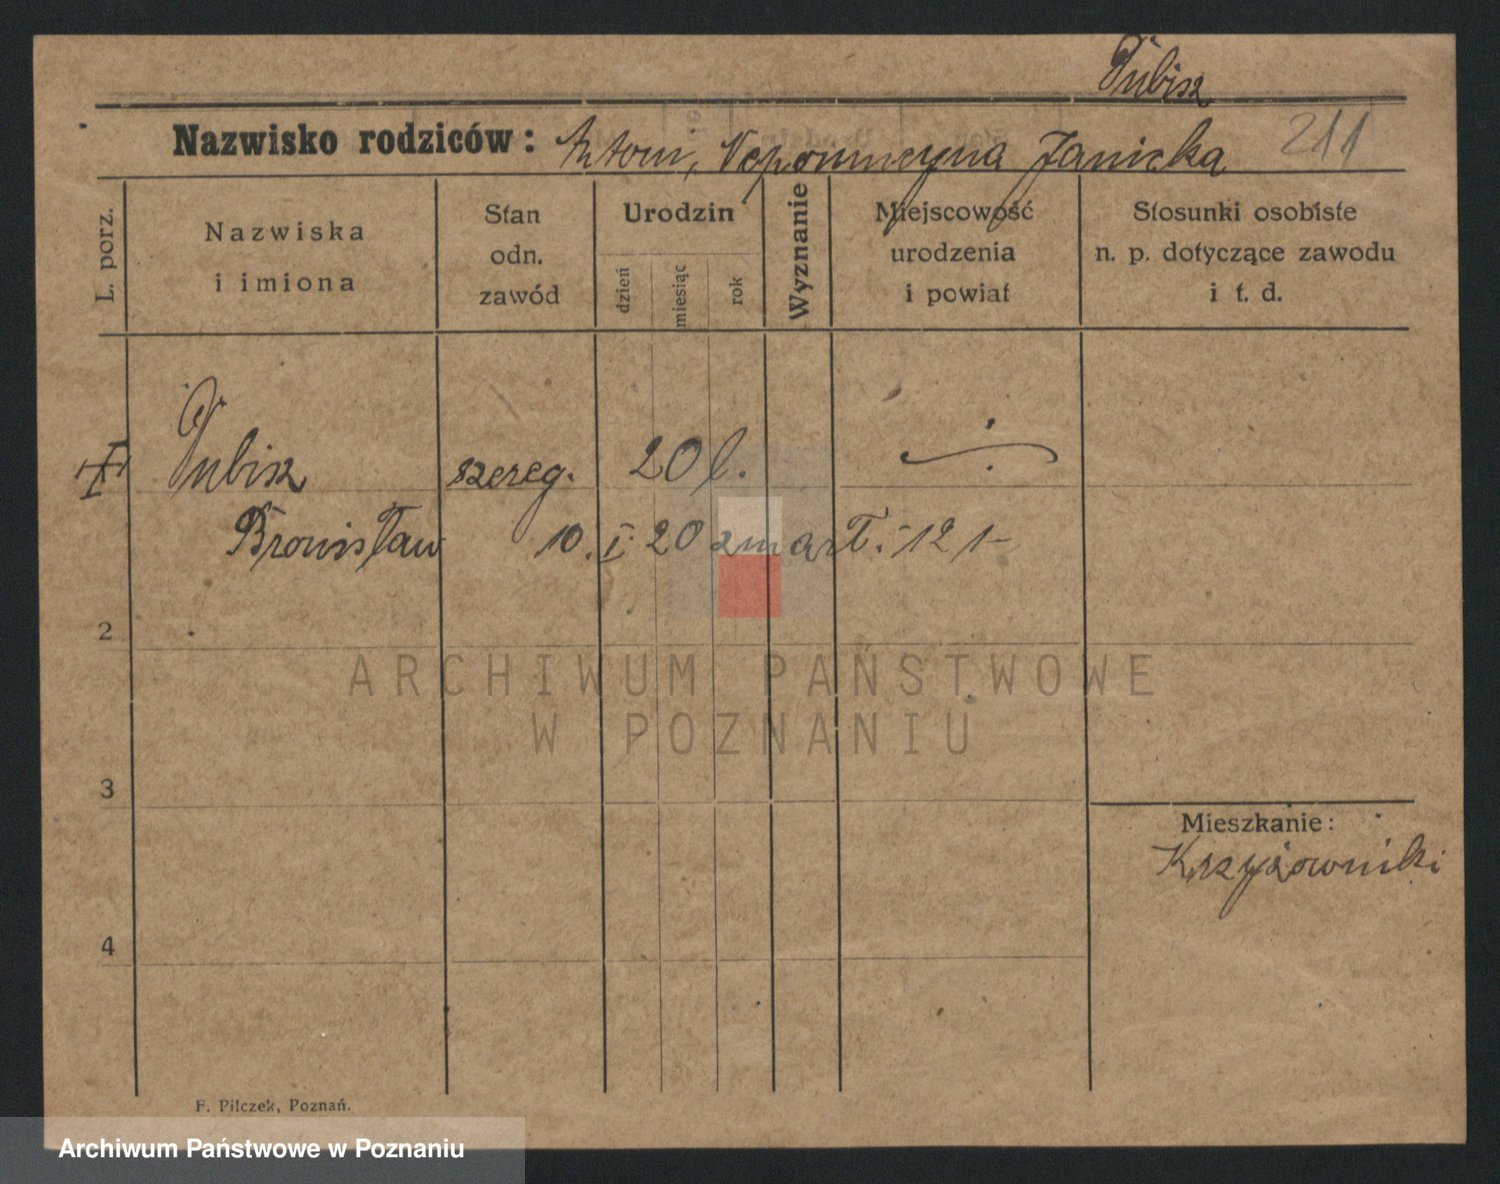 Pubisz
Nazwisko rodziców: Antoni, Nepomucyna Janicka 211
L. porz.
Nazwiska
i imiona
Stan
odn.
zawód
Urodzin
dzień
miesiąc
rok
Wyznanie
Miejscowość
urodzenia
i powiat
Stosunki osobiste
n. p. dotyczące zawodu
i t. d.
Pubisz szereg. 20 l. ÷
Bronisław 10. I. 20 zmarł. - 12 1-
2
ARCHIWUM PAŃSTWOWE
W POZNANIU
3
Mieszkanie:
Krzyżowniki
4
F. Pilczek, Poznań.
Archiwum Państwowe w Poznaniu